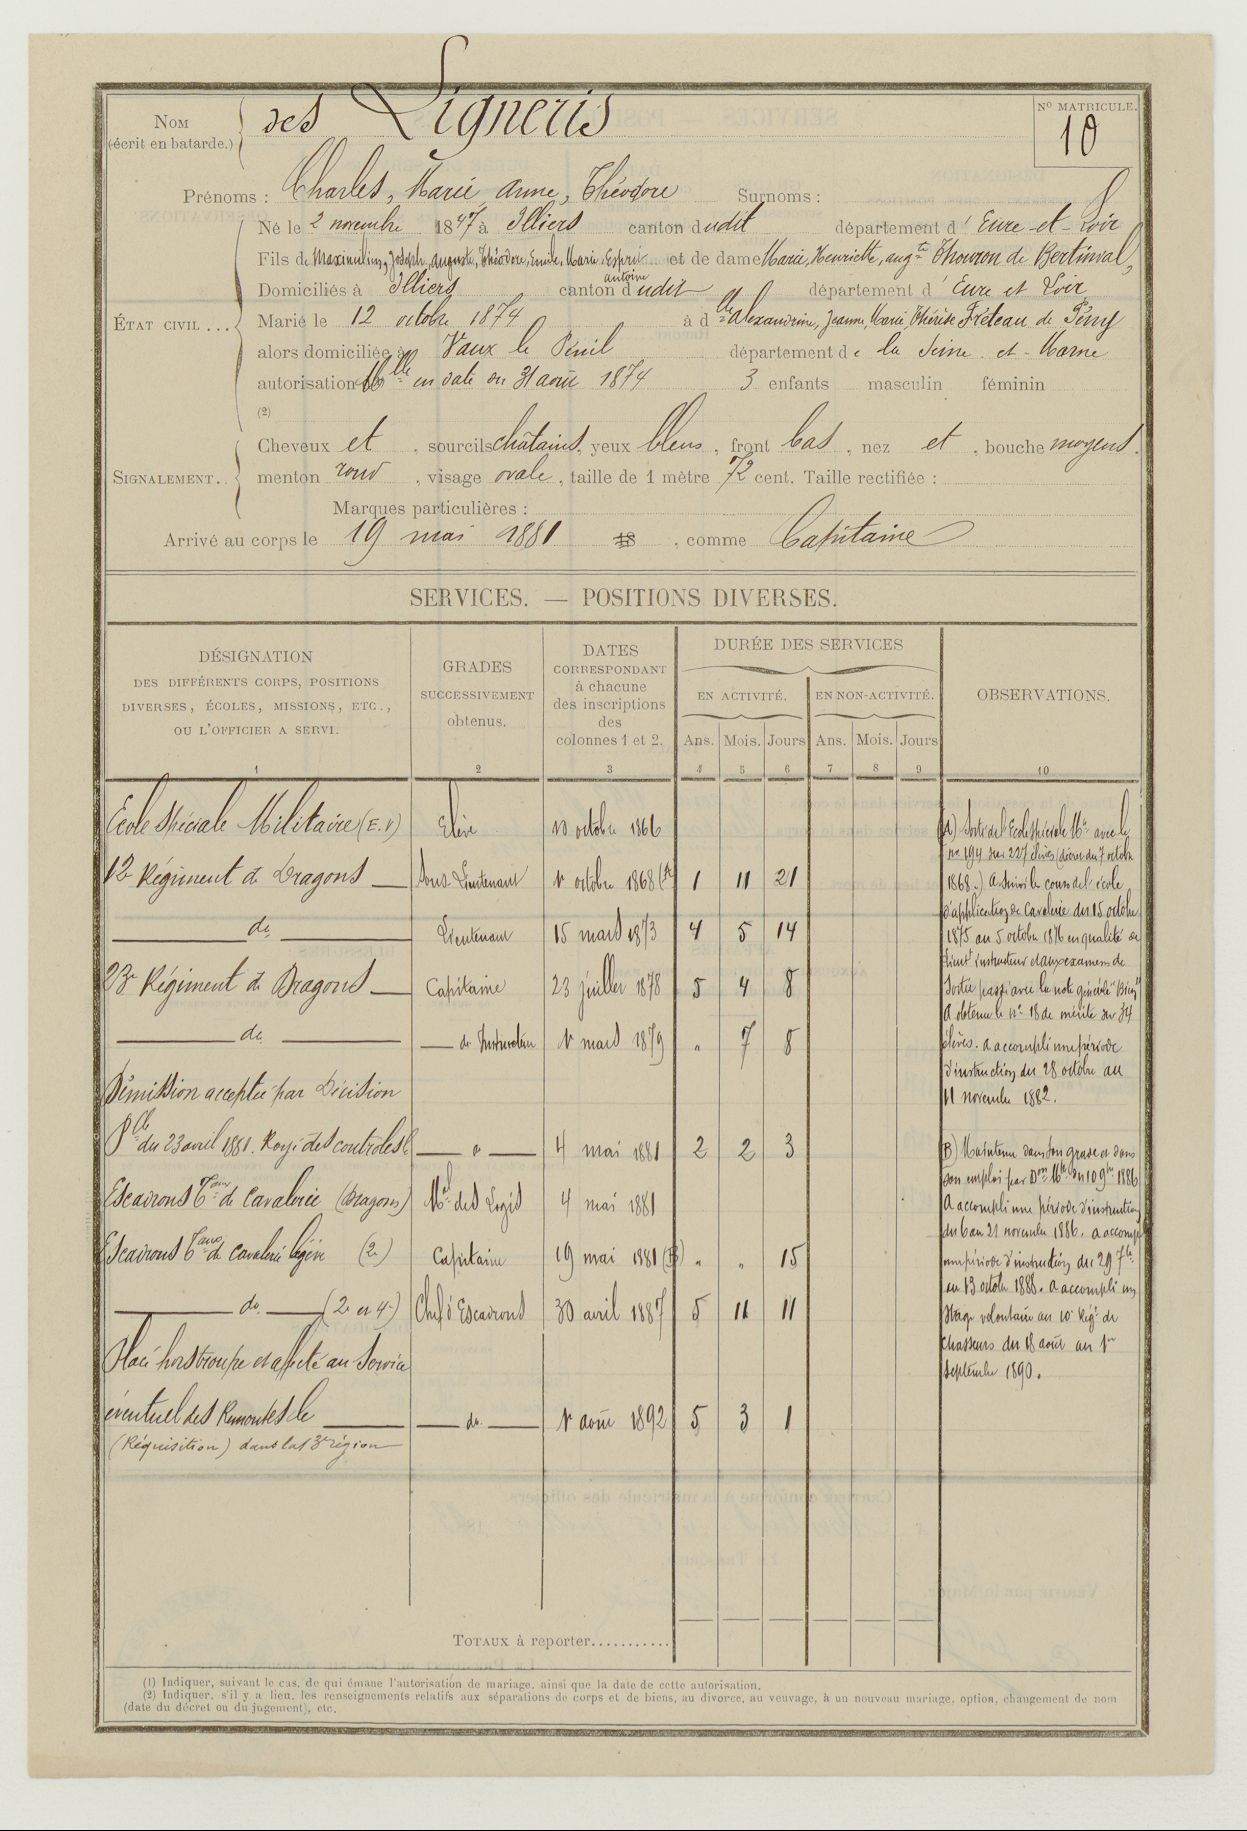 Nom
(écrit en batarde.)
des Ligneris
No MATRICULE.
10
Prénoms : Charles, Marie, Anne, Théodore Surnoms :
Né le 2 novembre 1847 à Illiers canton dudit département d'Eure-et-Loir
Fils de Maximilien, Joseph, Auguste, Théodore, Emile, Marie, Esprit antoine et de dame Marie, Henriette, augte Thouron de Bertinval,
Domiciliés à Illiers canton dudit département d'Eure et Loir
ÉTAT CIVIL ...
Marié le 12 octobre 1874 à dlle Alexandrine, Jeanne, Marie, Thérèse Fréteau de Pény
alors domiciliée à Vaux le Pénil département de la Seine-et-Marne
autorisation Mlle en date du 31 août 1874 3 enfants masculin féminin
(2)
SIGNALEMENT..
Cheveux et , sourcils châtains, yeux bleus, front bas, nez et , bouche moyens.
menton rond , visage ovale, taille de 1 mètre 72 cent. Taille rectifiée :
Marques particulières :
Arrivé au corps le 19 mai 1881 18 , comme Capitaine
SERVICES. — POSITIONS DIVERSES.
DÉSIGNATION
DES DIFFÉRENTS CORPS, POSITIONS
DIVERSES, ÉCOLES, MISSIONS, ETC.,
OU L'OFFICIER A SERVI.
GRADES
SUCCESSIVEMENT
obtenus.
DATES
CORRESPONDANT
à chacune
des inscriptions
des
colonnes 1 et 2.
DURÉE DES SERVICES
EN ACTIVITÉ. EN NON-ACTIVITÉ.
Ans. Mois. Jours Ans. Mois. Jours
OBSERVATIONS.
1 2 3 4 5 6 7 8 9 10
Ecole Spéciale Militaire (E.V) Elève 20 octobre 1866
12e Régiment de Dragons — Sous Lieutenant 1r octobre 1868 (A 1 11 21
— do — Lieutenant 15 mars 1873 4 5 14
23e Régiment de Dragons — Capitaine 23 juillet 1878 5 4 8
— do — — do Instructeur 1r mars 1879 " 7 8
Démission acceptée par Décision
Plle du 23 avril 1881. Rayé des contrôles le — " — 4 mai 1881 2 2 3
Escadrons Taux de Cavalerie (Dragons) Mal des Logis 4 mai 1881
Escadrons Taux de Cavalerie légère (2e) Capitaine 19 mai 1881 (B) " " 15
— do — (2e et 4e) Chef d'Escadrons 30 avril 1887 5 11 11
Placé hors troupe et affecté au Service
éventuel des Remontes le — — do — 1r août 1892 5 3 1
(Réquisition) dans la 3e région
A) Sorti de l'Ecole Spéciale Mre avec le
no 194 sur 227 élèves (décret du 7 octobre
1868.) A suivi les cours de l'école
d'application de Cavalerie du 15 octobre
1875 au 5 octobre 1876 en qualité de
Lieutt instructeur et aux examens de
Sortie passé avec la note générale "Bien"
A obtenu le no 18 de mérite sur 34
élèves. A accompli une période
d'instruction du 28 octobre au
11 novembre 1882.
B) Maintenu dans son grade et dans
son emploi par Don Mlle du 10 9bre 1886
A accompli une période d'instruction
du 6 au 21 novembre 1886. A accompli
une période d'instruction du 29 7bre
au 13 octobre 1888. A accompli un
Stage volontaire au 10e Régt de
Chasseurs du 18 août au 1er
Septembre 1890.
TOTAUX à reporter...........
(1) Indiquer, suivant le cas, de qui émane l'autorisation de mariage, ainsi que la date de cette autorisation.
(2) Indiquer, s'il y a lieu, les renseignements relatifs aux séparations de corps et de biens, au divorce, au veuvage, à un nouveau mariage, option, changement de nom
(date du décret ou du jugement), etc.